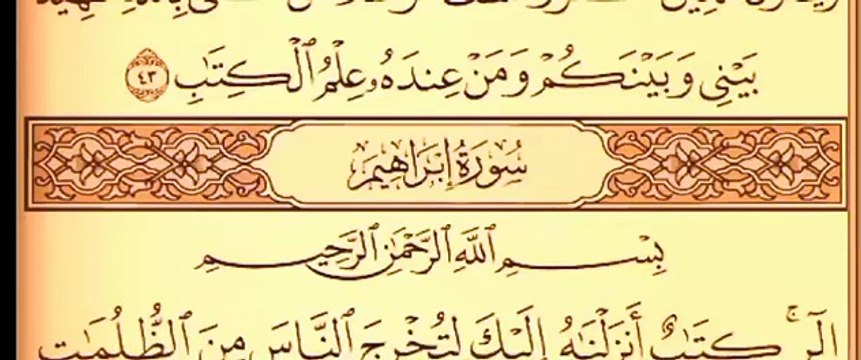 بَيْنِى وَبَيْنَكُمْ وَمَنْ عِندَهُۥ عِلْمُ ٱلْكِتَٰبِ ٤٣
سُورَةُ إِبْرَاهِيمَ
بِسْمِ ٱللَّهِ ٱلرَّحْمَٰنِ ٱلرَّحِيمِ
الٓرۚ كِتَٰبٌ أَنزَلْنَٰهُ إِلَيْكَ لِتُخْرِجَ ٱلنَّاسَ مِنَ ٱلظُّلُمَٰتِ